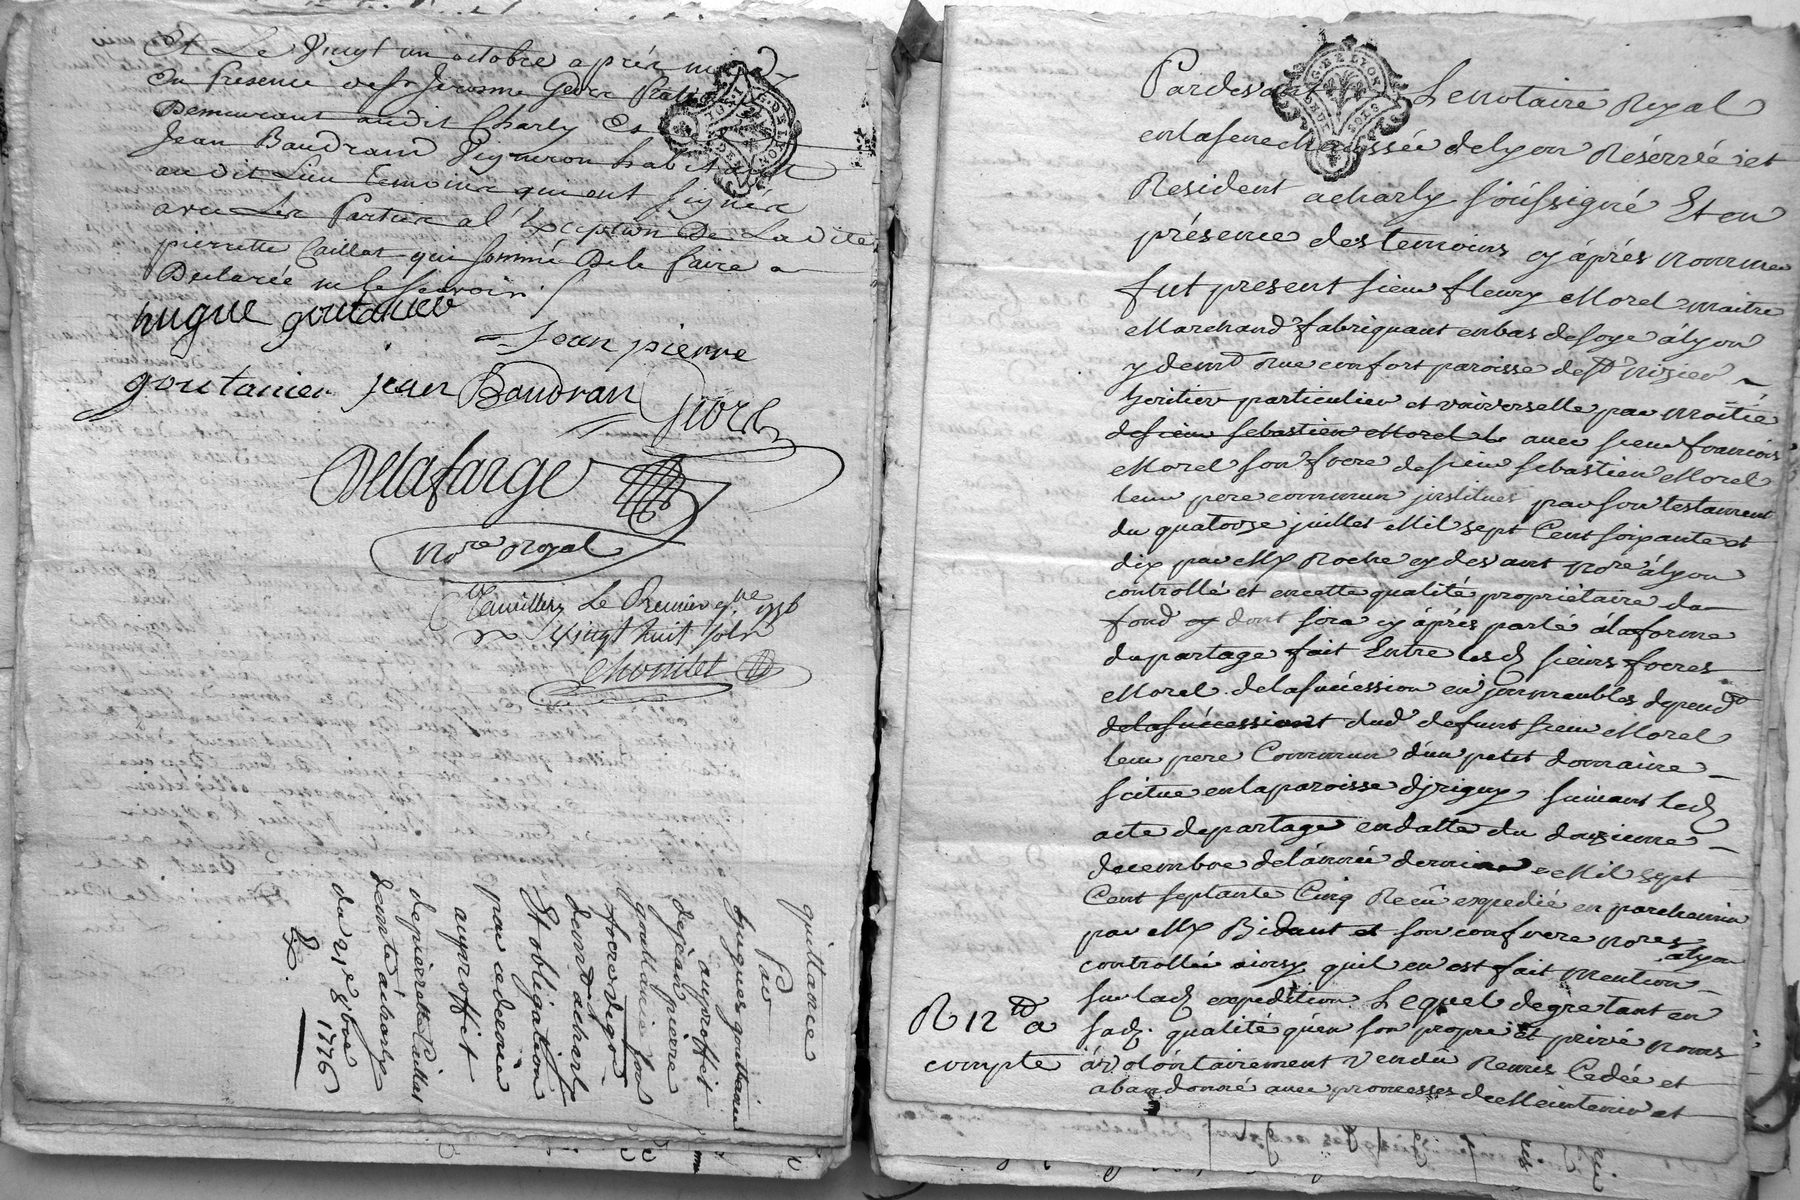 Et Le Vingt un octobre après midy
En Presence de Sr Jerosme
Demeurant audit Charly Et
Jean Baudrand Vigneron habitant
audit Lieu temoins qui ont signés
avec Les Parties a l'Exception De Ladite
pierrette Caillat qui sommé De le faire a
Declarée ne le sçavoir
hugue goutanieu
Jean pierre
goutanieu jean Baudran
Delafarge
No.re Royal
Le Premier 9.bre 1776
Vingt huit sols
quittance
Par
hugues gouttanieu
au proffit
de jean pierre
gouttanieu son
frere vigo
demt a charly
Et obligation
par ce dernier
au proffit
de pierrette Caillat
demte a charly
du 21e 8bre
1776
G. DE LYON
Pardevant Le notaire Royal
en la senechaussée de lyon Réservé et
Resident a charly soussigné Et en
présence des temoins cy après nommés
fut present sieur fleury Morel maitre
Marchand fabriquant en bas de soye à lyon
y demt rue confort paroisse de St nizier
heritier particulier et universelle par moitié
de sieur Sebastien Morel le avec sieur françois
Morel son frere de sieur Sebastien Morel
leur pere commun institués par son testament
du quatorze juillet Mil sept Cent soixante et
dix par Me Roche cy devant Nore à lyon
controllé et en cette qualité propriétaire du
fond cy dont sera cy après parlé à la forme
du partage fait Entre lesd sieurs freres
Morel de la succession en immeubles depend
de la succession dud defunt sieur Morel
leur pere Commun d'un petit domaine
scitue en la paroisse d'irigny suivant led
acte de partage en datte du douzieme
decembre de l'année derniere Mil sept
Cent septante Cinq Reçu expedié en parchemin
par Me Bidaut et son confrere nores
a lyon
controllé ainsy quil en est fait mention
sur lad expedition Lequel de gre tant en
sad. qualité qu'en son propre et privé nom
à volontairement vendu Remis Cedée et
abandonné avec promesses de Meintenir et
R 12 tt a
compte